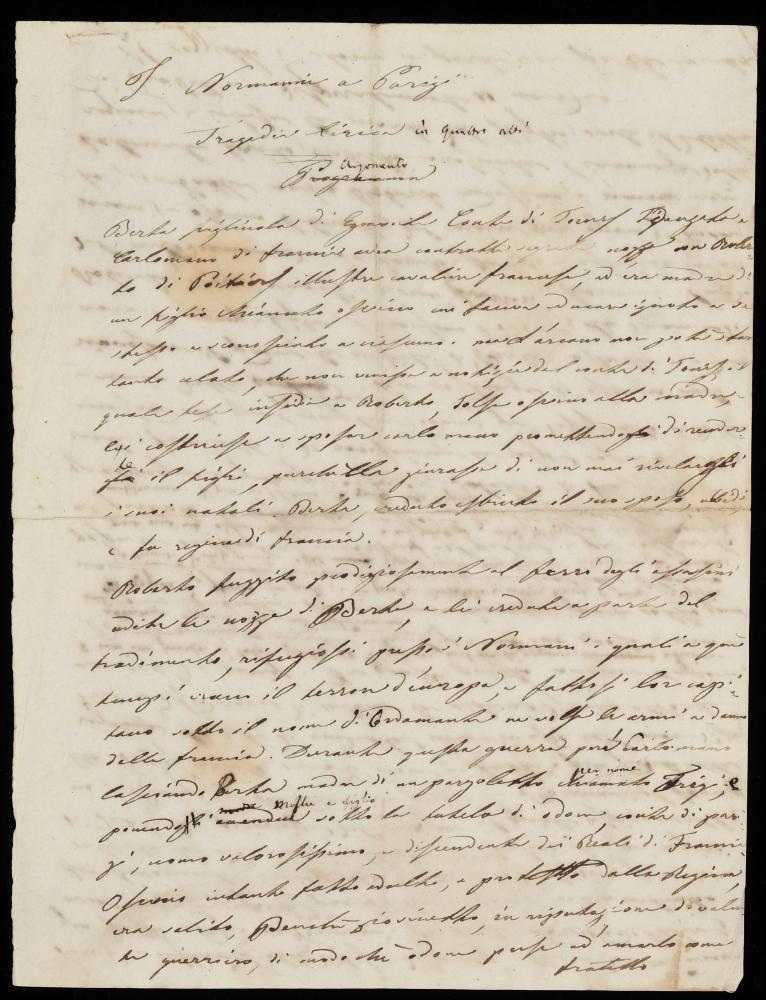 I Normanni a Parigi
Tragedia Lirica in quattro atti
Argomento
Programma
Berta figliuola di Conte di Tours Fidanzata a
Carlomano di francia avea contratte segrete nozze con Rober-
to di Poitiers illustre cavaliere francese, ed era madre di
un figlio chiamato osvino cui faceva educare ignoto a se
stesso e sconosciuto a ciascuno. ma l'arcano non potè star
tanto celato, che non venisse a notizia del conte di Tours, il
quale tese insidie a Roberto, tolse osvino alla madre,
e costrinse a sposar carlo mano promettendogli di render-
le il figlio, purchè ella giurasse di non mai rivelargli
i suoi natali. Berta, creduto estinto il suo sposo, obbedì
e fu regina di francia.
Roberto fuggito prodigiosamente al ferro degli assassini
udite le nozze di Berta, e lei creduta a parte del
tradimento, rifugiossi presso i Normanni i quali a que'
tempi erano il terror d'europa, e fattosi lor capi-
tano sotto il nome di Ordamante ne volse le armi a danno
della francia. Durante questa guerra perì Carlo mano
lasciando Berta madre di un pargoletto chiamato per nome Terigi, e
ponendo moglie e figlio sotto la tutela di odone, conte di pari
gi, uomo valorosissimo, e discendente dei Reali di Francia
Osvino intanto fatto adulto, e protetto dalla Regina,
era salito, Benchè giovinetto, in riputazione di valen
te guerriero, di modo che odone prese ad amarlo come
fratello